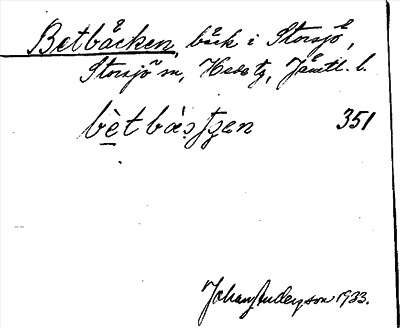 Betbäcken, bäck i Storsjö,
Storsjö sn, Hede tg, Jämtl. l.
bètbàsʃʒen 351
Johan Anderson 1933.